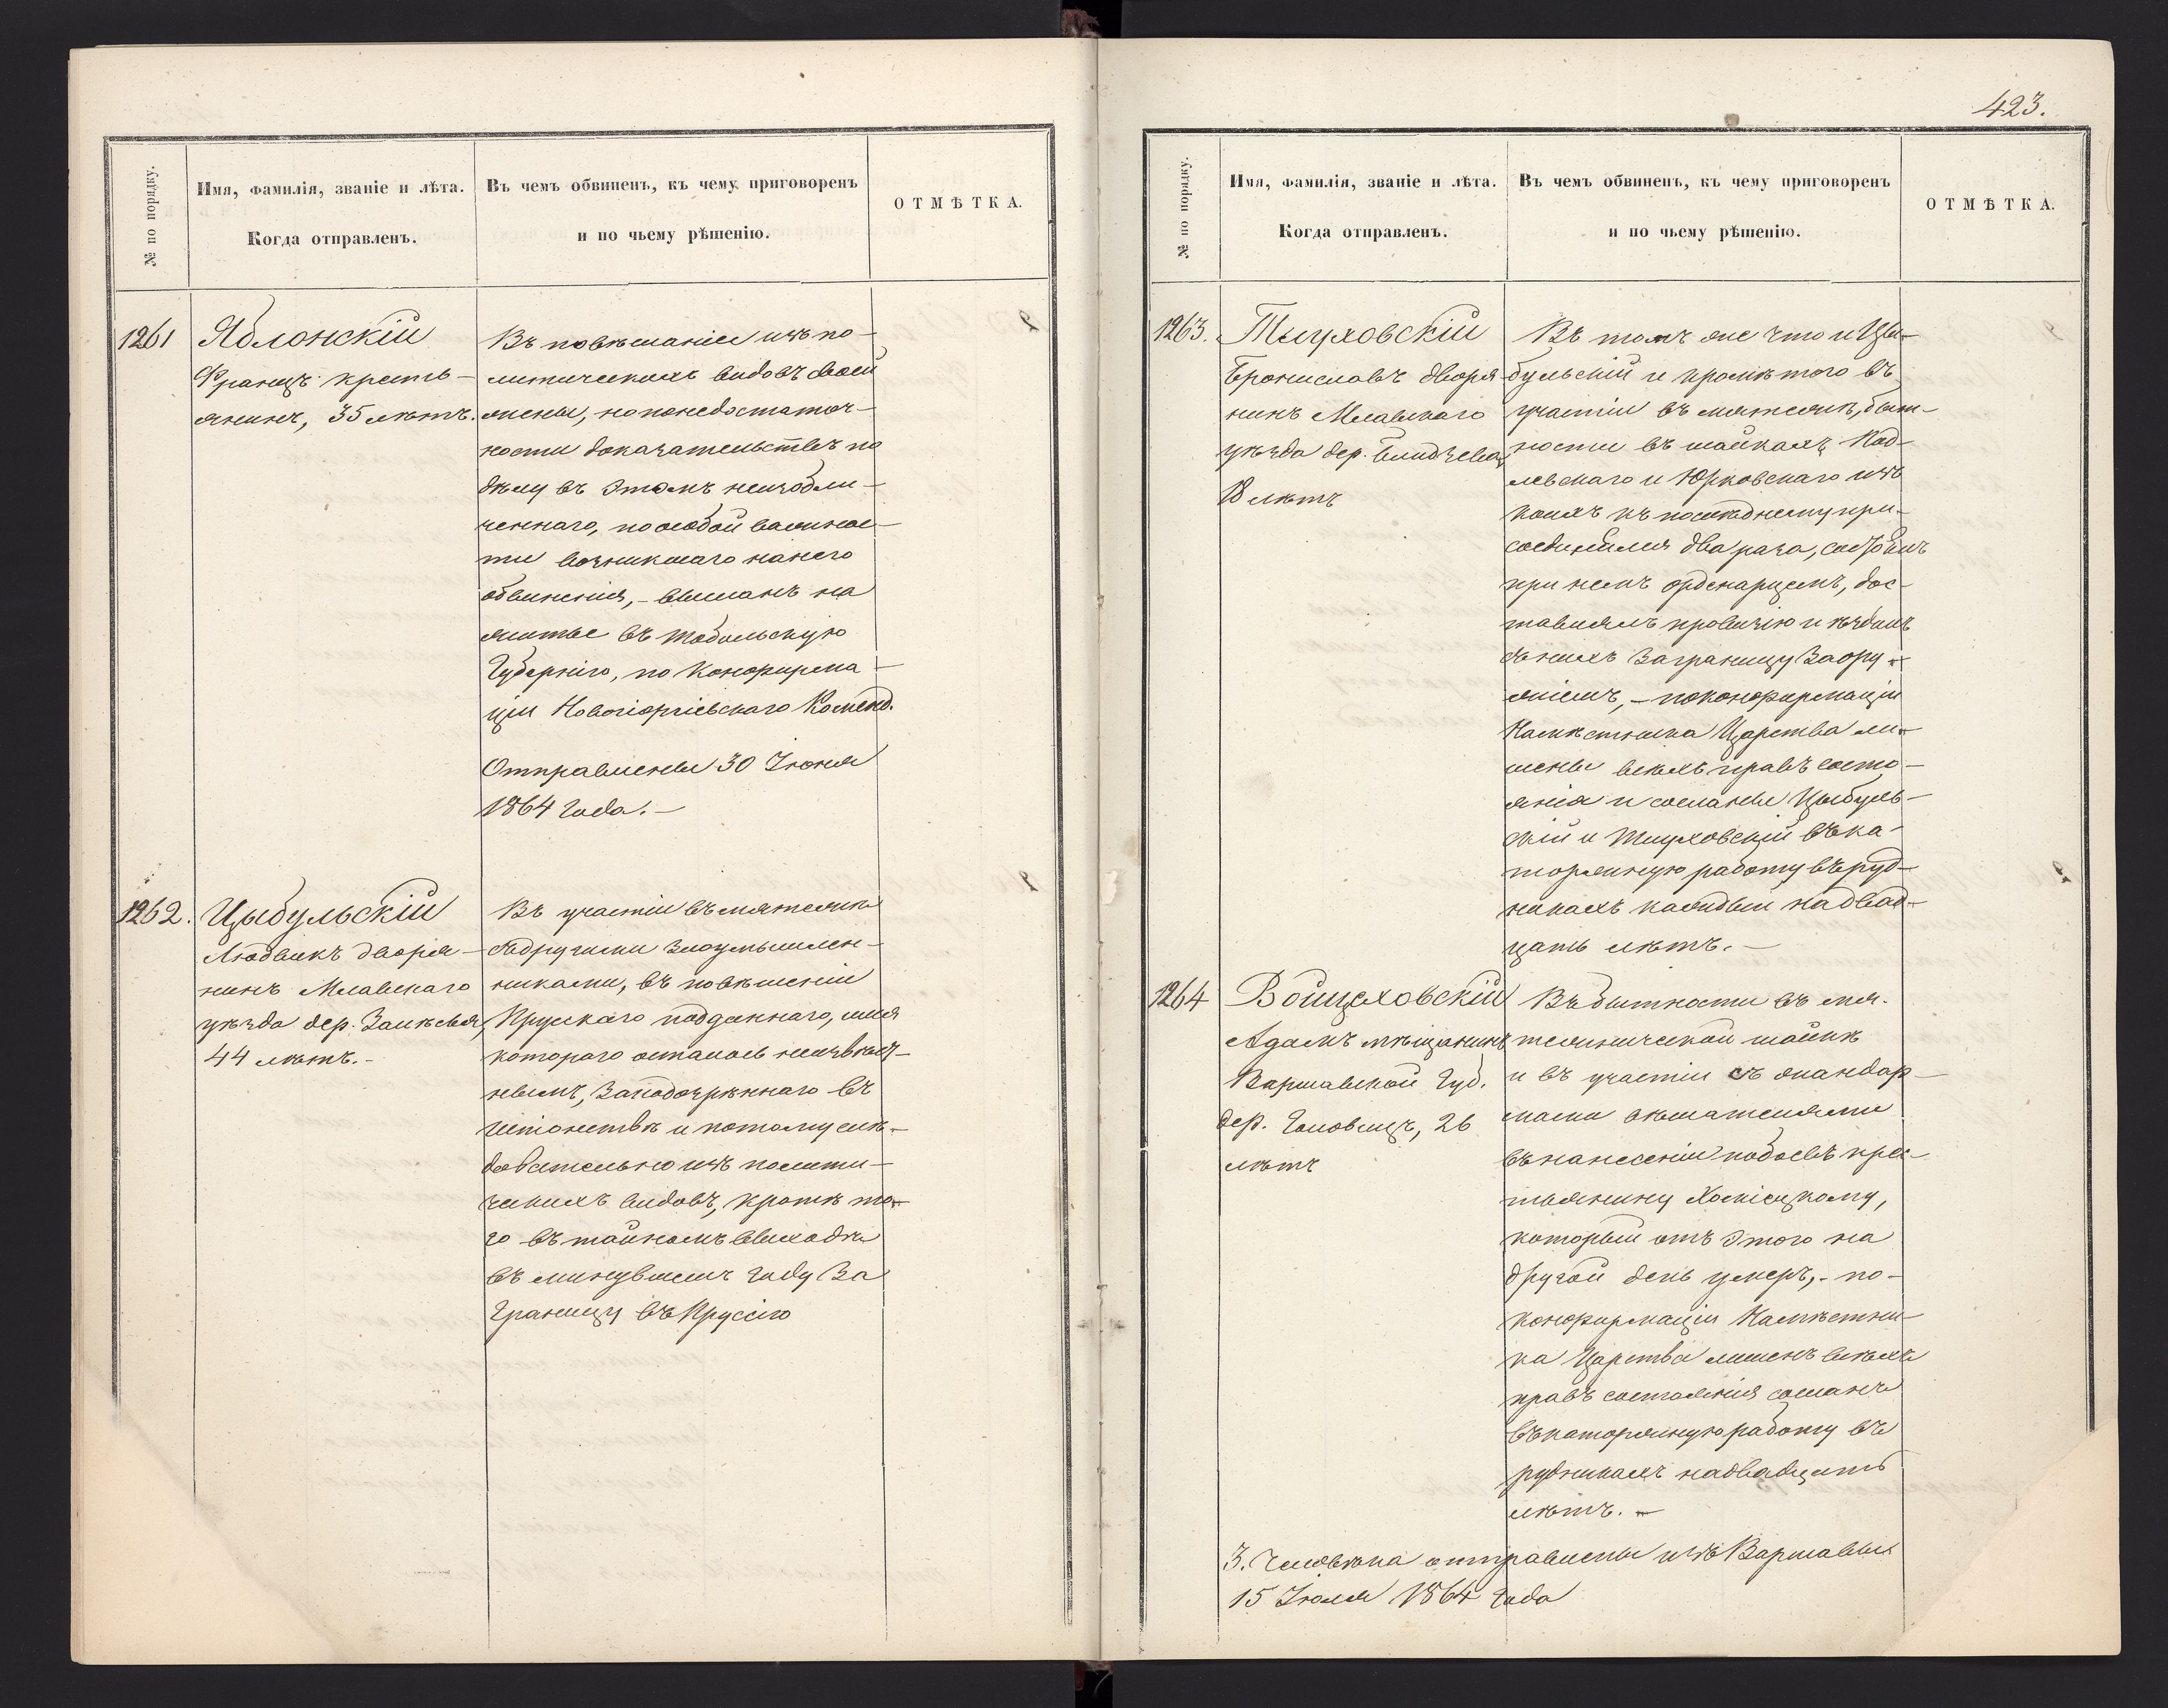 № по порядку.
Имя, фамилія, званіе и лѣта.
Когда отправленъ.
Въ чемъ обвиненъ, къ чему приговоренъ
и по чьему рѣшенію.
ОТМѢТКА.
1261
Яблонскій
Францъ кресть-
янинъ, 35 лѣтъ.
Въ повѣшаніи изъ по-
литическихъ видовъ своей
жены, но по недостаточ-
ности доказательствъ по
дѣлу въ этомъ неизобли-
ченнаго, по особой важнос-
ти возникшаго на него
обвиненія, - высланъ на
житье въ Тобольскую
Губернію, по Конфирма-
ціи Новогіоргіевскаго Коменд.
Отправлены 30 Іюня
1864 года. -
1262.
Цыбульскій
Людвикъ дворя-
нинъ Млавскаго
уѣзда дер.
44 лѣтъ. -
Въ участіи въ мятежѣ
съ другими злоумышлен-
никами, въ повѣшеніи
Прусскаго подданнаго, имя
котораго осталось неизвѣст-
нымъ, заподозрѣннаго въ
шпіонствѣ и потому слѣ-
довательно изъ полити-
ческихъ видовъ, кромѣ то-
го въ тайномъ выходѣ
въ минувшемъ году за
границу въ Пруссію
423.
№ по порядку.
Имя, фамилія, званіе и лѣта.
Когда отправленъ.
Въ чемъ обвиненъ, къ чему приговоренъ
и по чьему рѣшенію.
ОТМѢТКА.
1263.
Тыуховскій
Брониславъ дворя-
нинъ Млавскаго
уѣзда дер.
18 лѣтъ
Въ томъ же что и Цы-
бульскій и кромѣ того въ
участіи въ мятежѣ, быт-
ности въ шайкахъ Код-
левскаго и Юрковскаго изъ
коихъ къ послѣднему при-
соединился два раза, состоялъ
при немъ орденарцемъ, дос-
тавлялъ провизію и ѣздилъ
для нихъ заграницу за ору-
жіемъ, - по конфирмаціи
Намѣстника Царства ли-
шены всѣхъ правъ состо-
янія и сосланы Цыбуль-
скій и Тыуховскій въ ка-
торжную работу въ руд-
никахъ каждый на двад-
цать лѣтъ. -
1264
Войцеховскій
Адамъ мѣщанинъ
Варшавской Губ.
дер. Головицъ, 26
лѣтъ
Въ бытности въ мя-
тежнической шайкѣ
и въ участіи съ жандар-
мами вѣшателями
въ нанесеніи побоевъ крес-
тьянину Хомицкому,
который отъ этого на
другой день умеръ, - по-
конфирмаціи Намѣстни-
ка Царства лишенъ всѣхъ
правъ состоянія сосланъ
въ каторжную работу въ
рудникахъ на двадцать
лѣтъ. -
3. Человѣка отправлены изъ Варшавы
15 Іюля 1864 года